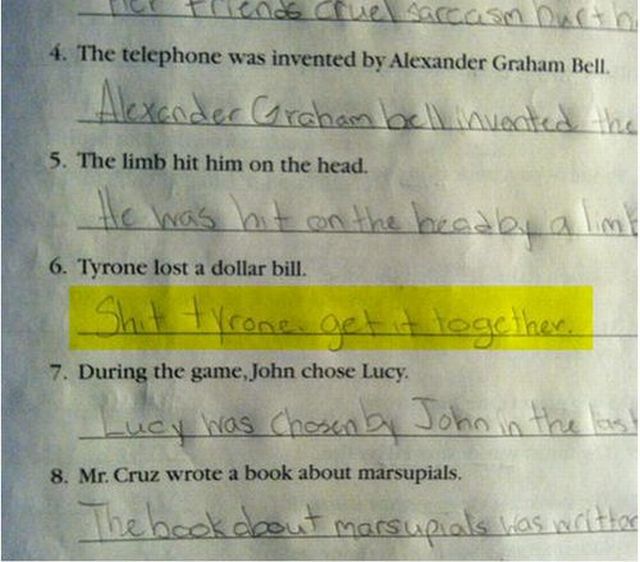 Her friends cruel sarcasm hurt h
4. The telephone was invented by Alexander Graham Bell.
Alexander Graham bell invented the
5. The limb hit him on the head.
He was hit on the head by a limb
6. Tyrone lost a dollar bill.
Shit tyrone. get it together.
7. During the game, John chose Lucy.
Lucy was chosen by John in the last
8. Mr. Cruz wrote a book about marsupials.
The book about marsupials was writton